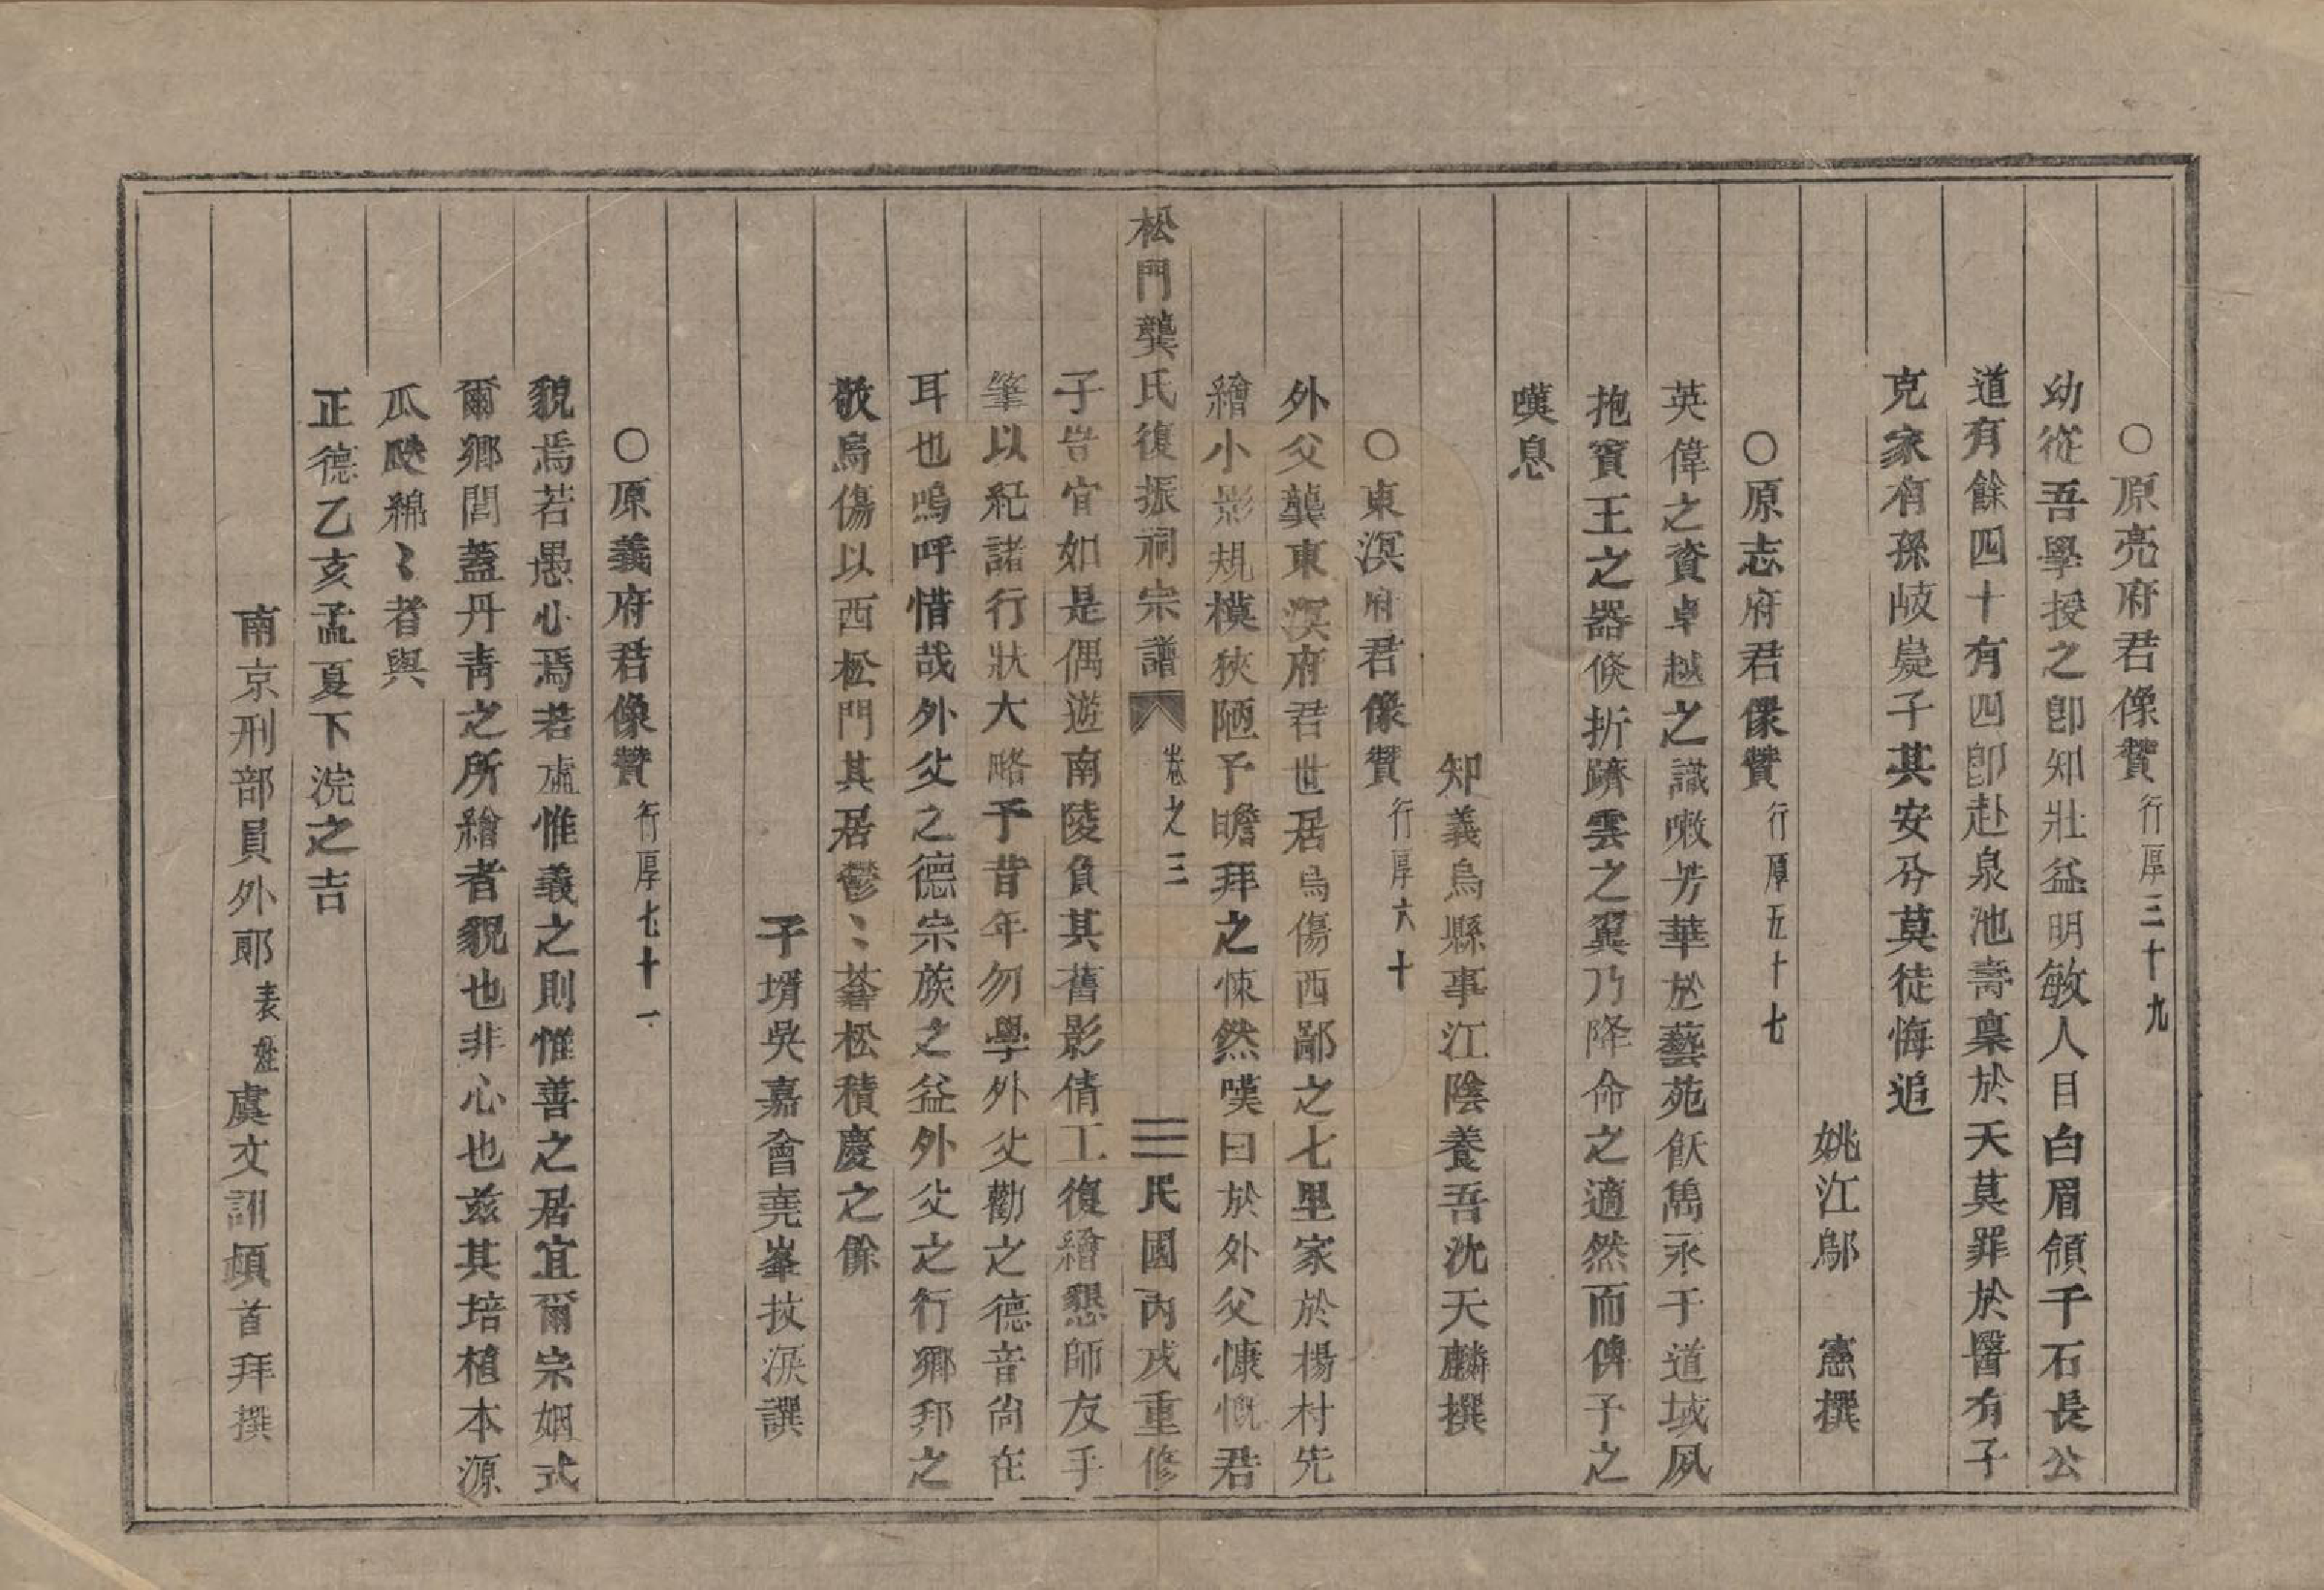 ○原亮府君像贊行厚三十九
幼從吾學授之卽知壯益明敏人目白眉領千石長公
道有餘四十有四卽赴泉池壽稟於天莫罪於醫有子
克家有孫岐嶷子其安兮莫徒悔追
姚江鄔　憲撰
○原志府君像贊行厚五十七
英偉之資卓越之識噉芳華於藝苑飫雋永于道域夙
抱寶王之器倏折躋雲之翼乃降命之適然而俾予之
嘆息
知義烏縣事江陰養吾沈天麟撰
○東溟府君像贊行厚六十
外父龔東溟府君世居烏傷西鄙之七里家於楊村先
繪小影規模狹陋予瞻拜之悚然嘆曰於外父慷慨君
松門龔氏復振祠宗譜　卷之三　三　民國丙戌重修
子豈宜如是偶遊南陵負其舊影倩工復繪懇師友乎
筆以紀諸行狀大略予昔年勿學外父勸之德音尙在
耳也嗚呼惜哉外父之德宗族之益外父之行鄉邦之
敬烏傷以西松門其居鬱〻蒼松積慶之餘
子壻吳嘉會堯峯抆淚譔
○原義府君像贊行厚七十一
貌焉若愚心焉若虛惟義之則惟善之居宜爾宗姻式
爾鄉閭蓋丹靑之所繪者貌也非心也兹其培植本源
瓜瓞綿〻者與
正德乙亥孟夏下浣之吉
南京刑部員外郞表姪虞文訓頓首拜撰